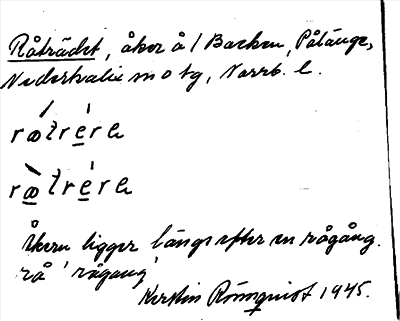 Råträdet, åker å 1 Backen, Pålänge,
Nederkalix sn o tg, Norrb. l.
rætre̲ra
ræ̲tre̲ra
Åkern ligger längs efter en rågång.
rå 'rågang'
Kerstin Rönnquist 1945.